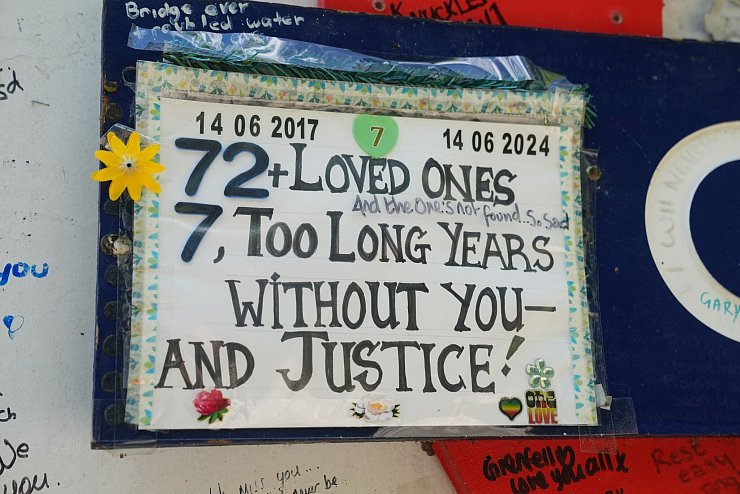 Bridge over
troubled water
KNUCKLES
14 06 2017
7
14 06 2024
72+LOVED ONES
And the One's not found...So Sad
7, TOO LONG YEARS
WITHOUT YOU—
AND JUSTICE!
one
LOVE
I Will Nev
GARY
you
We
you.
MISS you...
never be
Grenfell
Love you all x
Rest
easy